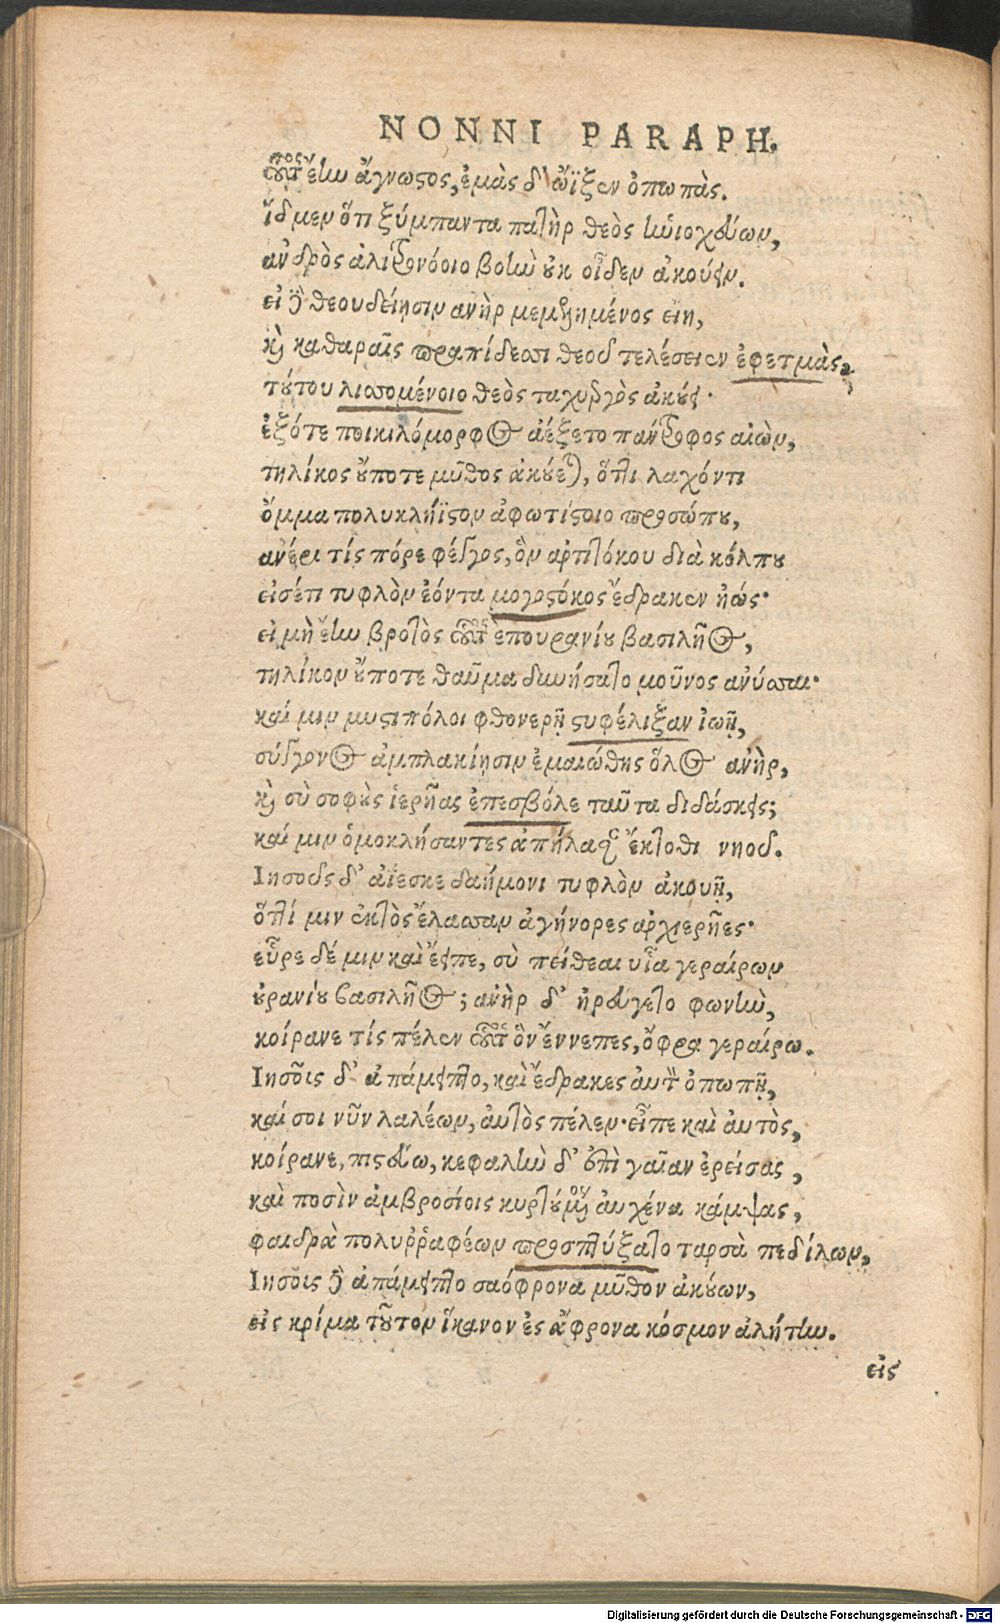 NONNI PARAPH.
οὗτος ἔην ἄγνωστος, ἐμὰς δ' ὤϊξεν ὀπωπάς.
ἴδμεν ὅτι ξύμπαντα πατὴρ θεὸς ἡνιοχεύων,
ἀνδρὸς ἀλιτρονόοιο βοὴν οὐκ οἶδεν ἀκούειν.
εἰ δὲ θεουδείησιν ἀνὴρ μεμελημένος εἴη,
καὶ καθαραῖς πραπίδεσσι θεοῦ τελέσειεν ἐφετμάς,
τούτου λισσομένοιο θεὸς ταχυεργὸς ἀκούει·
ἐξότε ποικιλόμορφος ἀέξετο πάντροφος αἰὼν,
τηλίκος οὔποτε μῦθος ἀκούεται, ὅττι λαχόντι
ὄμμα πολυκλήϊστον ἀφωτίστοιο προσώπου,
ἀνέρι τίς πόρε φέγγος, ὃν ἀρτιτόκου διὰ κόλπου
εἰσέτι τυφλὸν ἐόντα μογοστόκος ἔδρακεν ἠώς·
εἰ μὴ ἔην βροτὸς οὗτος ἐπουρανίου βασιλῆος,
τηλίκον οὔποτε θαῦμα δυνήσατο μοῦνος ἀνύσσαι·
καί μιν μυστιπόλοι φθονερῇ στυφέλιξαν ἰωῇ,
σύγγονος ἀμπλακίησιν ἐμαιώθης ὅλος ἀνὴρ,
καὶ σὺ σοφοὺς ἱερῆας ἐπεσβόλε ταῦτα διδάσκεις;
καί μιν ὁμοκλήσαντες ἀπήλασαν ἔκτοθι νηοῦ.
Ιησοῦς δ' ἀΐεσκε δαήμονι τυφλὸν ἀκουῇ,
ὅττί μιν ἐκτὸς ἔλασσαν ἀγήνορες ἀρχιερῆες·
εὗρε δέ μιν καὶ ἔειπε, σὺ πείθεαι υἷα γεραίρων
οὐρανίου βασιλῆος; ἀνὴρ δ' ἠρεύγετο φωνὴν,
κοίρανε τίς πέλεν οὗτος ὃν ἔννεπες, ὄφρα γεραίρω.
Ιησοῦς δ' ἀπάμειπτο, καὶ ἔδρακες αὐτὸν ὀπωπῇ,
καί σοι νῦν λαλέων, αὐτὸς πέλεν· εἶπε καὶ αὐτὸς,
κοίρανε, πιστεύω, κεφαλὴν δ' ἐπὶ γαῖαν ἐρείσας,
καὶ ποσὶν ἀμβροσίοις κυρτούμενον αὐχένα κάμψας,
φαιδρὰ πολυῤῥαφέων προσπτύξατο ταρσὰ πεδίλων,
Ιησοῦς δὲ ἀπάμειπτο σαόφρονα μῦθον ἀκούων,
εἰς κρίμα τοῦτον ἵκανον ἐς ἄφρονα κόσμον ἀλήτην.
εἰς
Digitalisierung gefördert durch die Deutsche Forschungsgemeinschaft - DFG